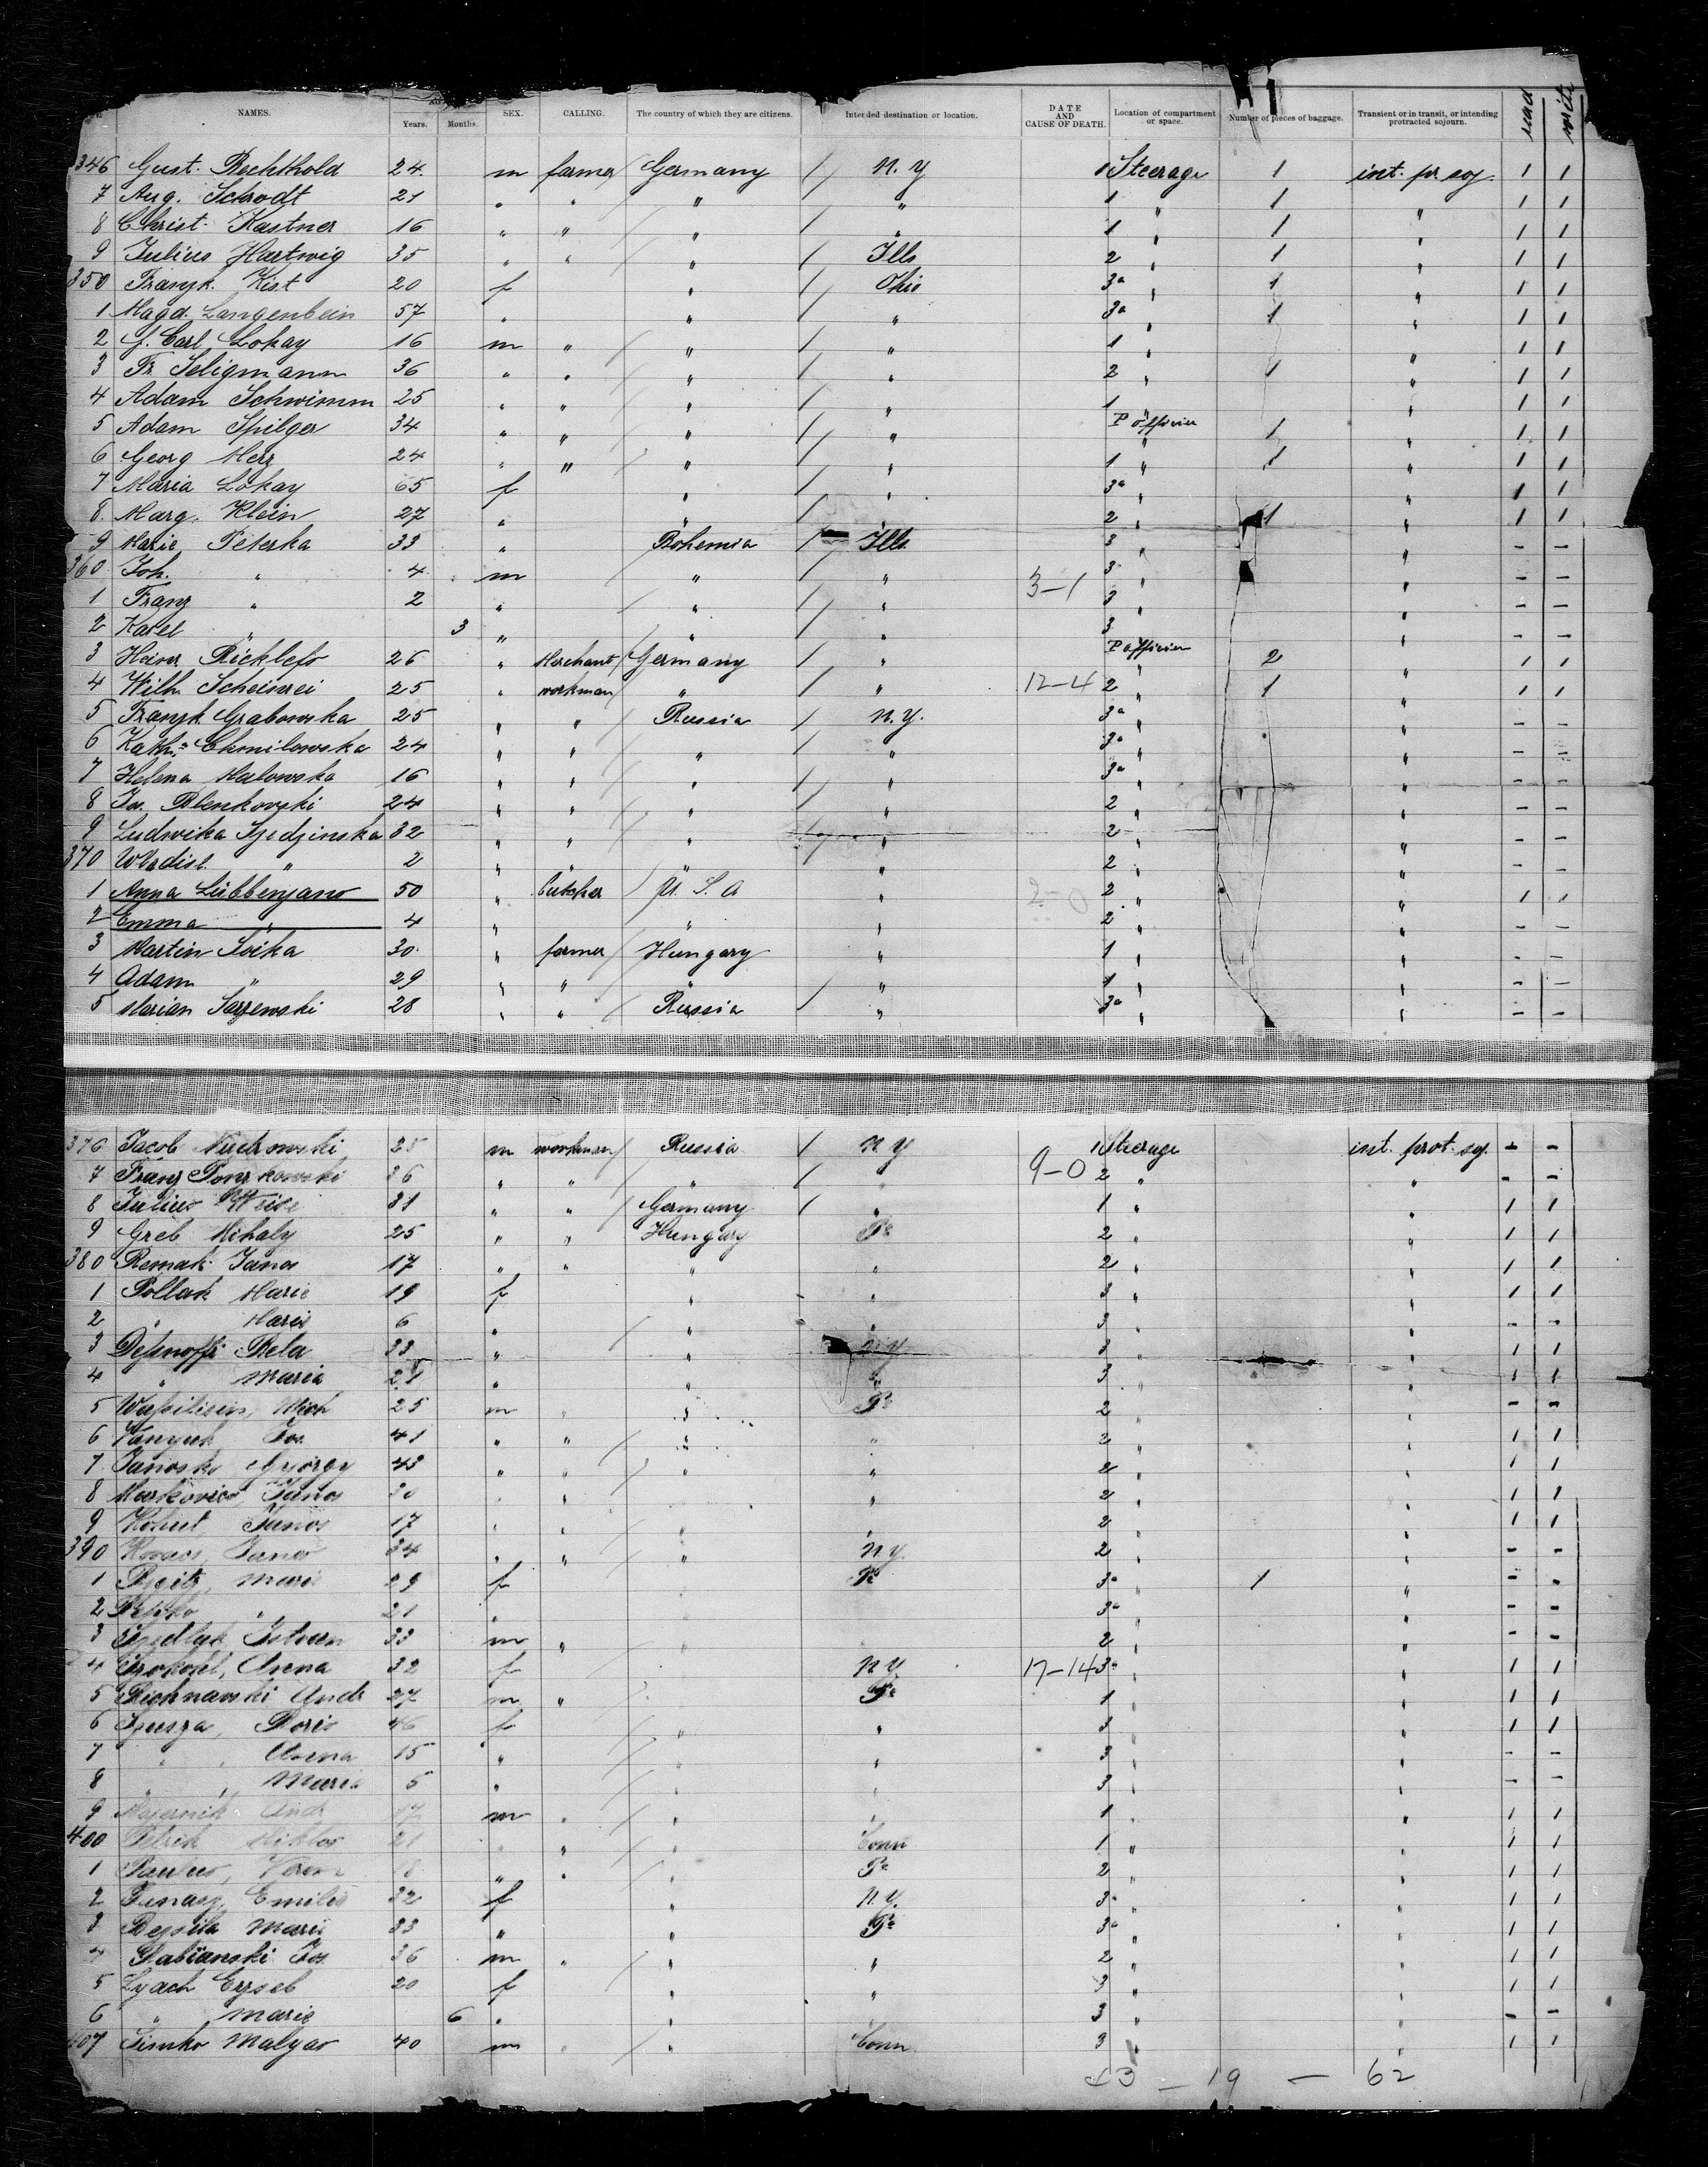 NAMES. Years. Months. SEX. CALLING. The country of which they are citizens. Intended destination or location. DATE AND CAUSE OF DEATH. Location of compartment or space. Number of pieces of baggage. Transient or in transit, or intending protracted sojourn. read write
346 Gust. Bechthold 24 m farmer / Germany / N. Y 1 Steerage 1 int. pr. soj. 1 1
7 Aug. Schrodt 21 " " / " / " 1 " 1 " 1 1
8 Christ. Kastner 16 " " / " / " 1 " 1 " 1 1
9 Julius Hartwig 35 " " / " / Ills 2 " 1 " 1 1
350 Franzk. Kist 20 f / " / Ohio 3a " 1 " 1 1
1 Magd. Langenbein 57 " / " / " 3a " 1 " 1 1
2 J. Carl Lokay 16 m " / " / " 1 " " 1 1
3 Fr. Seligmann 36 " " / " / " 2 " 1 " 1 1
4 Adam Schwimm 25 " " / " / " 1 " " 1 1
5 Adam Spilger 34 " " / " / " P officier 1 " 1 1
6 Georg Herz 24 " " / " / " 1 " 1 " 1 1
7 Maria Lokay 65 f / " / " 3a " " 1 1
8 Marg. Klein 27 " / " / " 2 " 1 " 1 1
9 Marie Peterka 33 " Bohemia / Ills. 3 " " - -
360 Joh. " 4 m / " / " 3 " " - -
1 Franz " 2 " / " / " 3-1 3 " " - -
2 Karel " 3 " / " / " 3 " " - -
3 Heinr Ricklefs 26 " Merchant / Germany / " P officier 2 " 1 1
4 Wilh. Scheinrei 25 " workman / " / " 12-4 2 " 1 " 1 1
5 Franzk. Grabowska 25 " " / Russia / N. Y. 3a " " - -
6 Kath. Chmilowska 24 " " / " / " 3a " " - -
7 Helena Malowska 16 " " / " / " 3a " " - -
8 Jos. Blenkovski 24 " " / " / " 2 " " - -
9 Ludwika Szedzinska 32 " " / " / " 2 " " - -
370 Wladisl. " 2 " " / " " 2 " " - -
1 Anna Lübbenjans 50 " butcher / U. S. A " 2-0 2 " " 1 1
2 Emma " 4 " " " 2 " " - -
3 Martin Soika 30 " farmer / Hungary " 1 " " - -
4 Adam " 29 " " / " / " 1 " " - -
5 Marian Sarzewski 28 " " / Russia / " 3a " " - -
376 Jacob 25 m workman / Russia / N. Y 1 Steerage int. prot. soj. - -
7 Franz 36 " " / " / " 9-0 2 " " - -
8 Julius Weise 31 " " / Germany / " 1 " " 1 1
9 Greb Mihaly 25 " " Hungary Pa 2 " " 1 1
380 Remak Janos 17 " " " " 2 " " 1 1
1 Pollak Marie 19 f " " 3 " " 1 1
2 " Maria 6 " / " " 3 " - -
3 Bela 33 " / " N Y 3 " " 1 1
4 " Maria 21 " " " 3 " " 1 1
5 Mich 25 m " " Pa 2 " " - -
6 Jos. 41 " " / " " 2 " " 1 1
7 Janosko György 43 " " / " " 2 " " 1 1
8 Markovics Janos 30 " " / " 2 " " 1 1
9 Kohut Janos 17 " " / " " 2 " " 1 1
390 Kovacs, Janos 34 " " / " N. Y. 2 " " - -
1 29 f / Pa 3a " 1 " - -
2 " 21 " / 3a " " - -
3 Istvan 33 m " / " 2 " " - -
4 Anna 32 f / N Y 17-14 3a " " 1 1
5 Richnawski Andr 27 m " / Pa 1 " " 1 1
6 Boris 46 f / " " 3 " " 1 1
7 " Anna 15 " / " " 3 " " - -
8 " Maria 5 " / " " 3 " " - -
9 Majernik Andr 17 m " / " " 1 " " 1 1
400 Petrik Miklos 21 " " / " Conn 1 " " 1 1
1 18 " " / " Pa 2 " " 1 1
2 Emilie 32 f / " N. Y. 3a " " 1 1
3 Marie 33 " / " Pa 3a " " 1 1
4 Gabianski Jos. 36 m " / " " 2 " " 1 1
5 Lyach Erzseb 20 f / " " 3 " " 1 1
6 " Marie 6 " / " " 3 " " - -
407 Simko Malyas 40 m " / " Conn. 3 " " 1 1
19 - 62